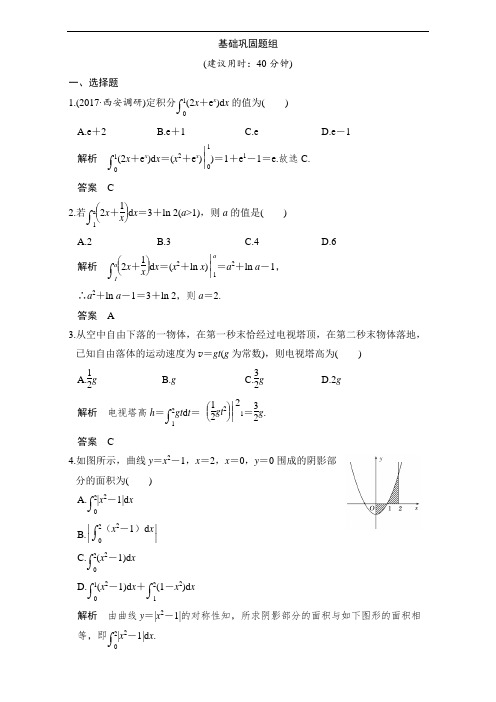 基础巩固题组
(建议用时：40分钟)
一、选择题
1.(2017·西安调研)定积分∫₀¹(2x＋eˣ)dx的值为(　　)
A.e＋2　B.e＋1　C.e　D.e－1
解析　∫₀¹(2x＋eˣ)dx＝(x²＋eˣ)|₀¹)＝1＋e¹－1＝e.故选C.
答案　C
2.若∫₁ᵃ(2x＋1/x)dx＝3＋ln 2(a>1)，则a的值是(　　)
A.2　B.3　C.4　D.6
解析　∫₁ᵃ(2x＋1/x)dx＝(x²＋ln x)|₁ᵃ＝a²＋ln a－1，
∴a²＋ln a－1＝3＋ln 2，则a＝2.
答案　A
3.从空中自由下落的一物体，在第一秒末恰经过电视塔顶，在第二秒末物体落地，
已知自由落体的运动速度为v＝gt(g为常数)，则电视塔高为(　　)
A.1/2g　B.g　C.3/2g　D.2g
解析　电视塔高h＝∫₁²gtdt＝(1/2gt²)|₁²＝3/2g.
答案　C
4.如图所示，曲线y＝x²－1，x＝2，x＝0，y＝0围成的阴影部
分的面积为(　　)
y
O 1 2 x
A.∫₀²|x²－1|dx
B.|∫₀²（x²－1）dx|
C.∫₀²(x²－1)dx
D.∫₀¹(x²－1)dx＋∫₁²(1－x²)dx
解析　由曲线y＝|x²－1|的对称性知，所求阴影部分的面积与如下图形的面积相
等，即∫₀²|x²－1|dx.